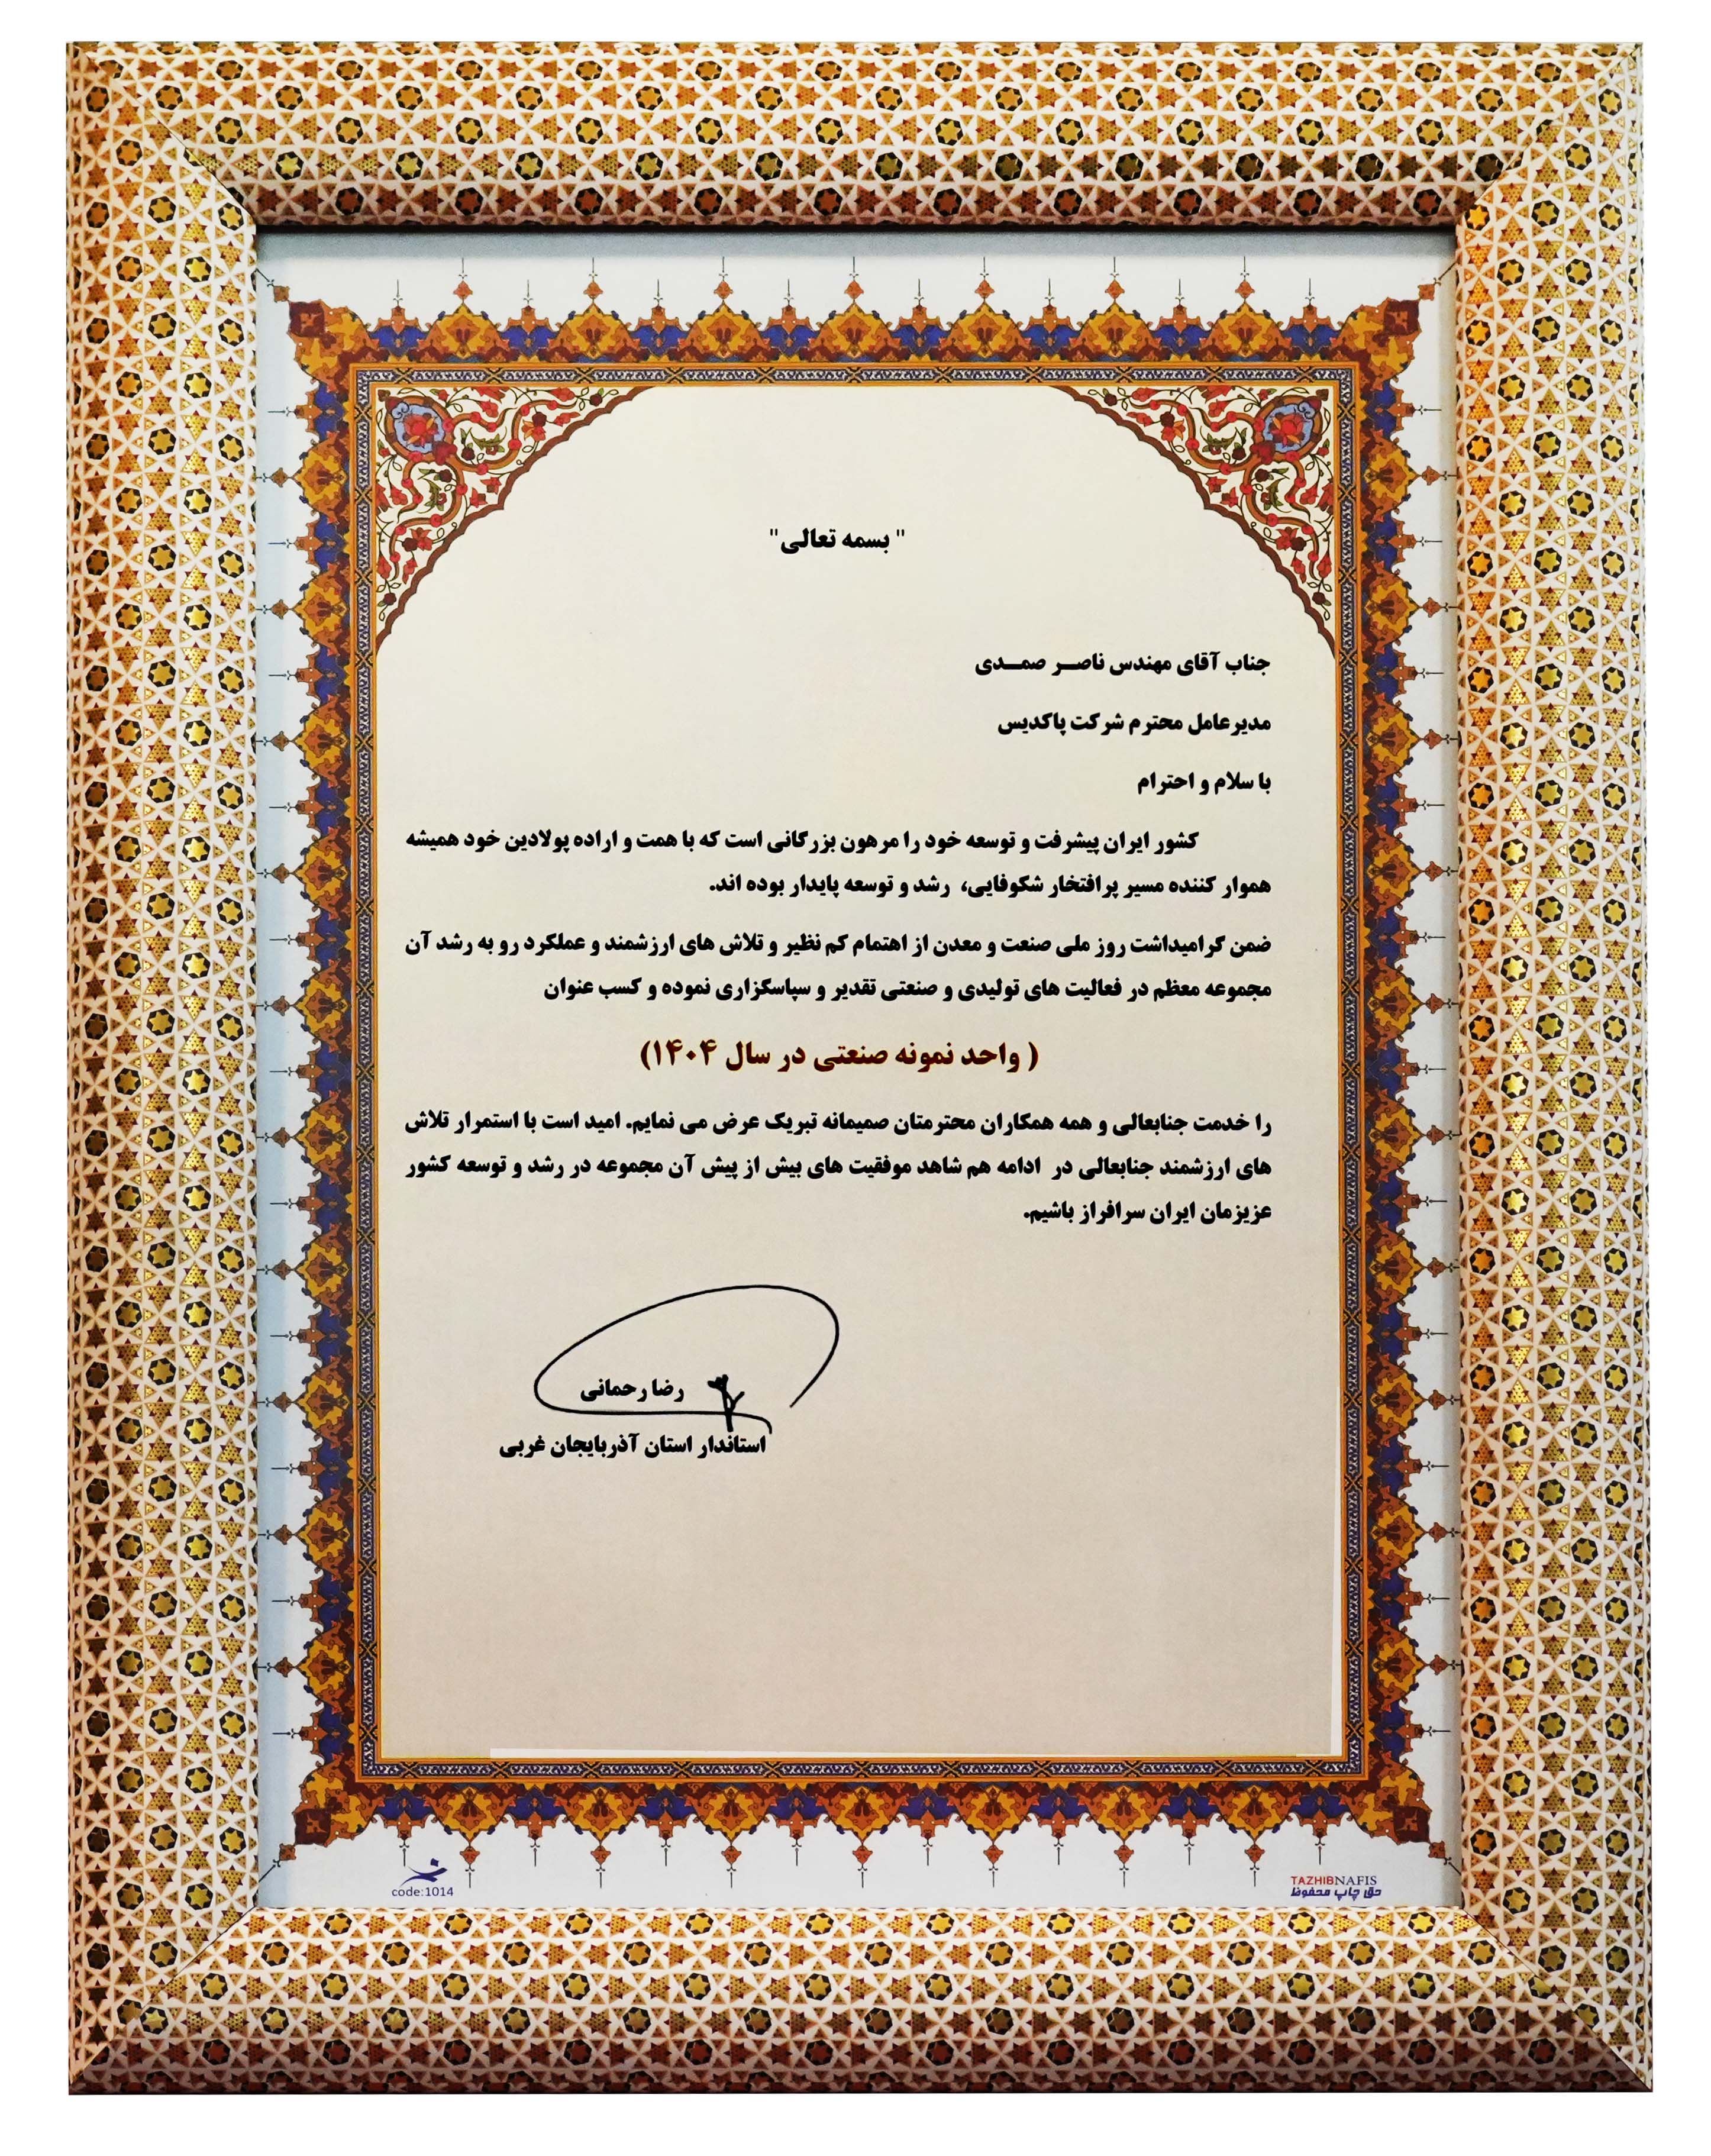 " بسمه تعالی"
جناب آقای مهندس ناصـــر صمـــدی
مدیرعامل محترم شرکت پاکدیس
با سلام و احترام
کشور ایران پیشرفت و توسعه خود را مرهون بزرگانی است که با همت و اراده پولادین خود همیشه
هموار کننده مسیر پرافتخار شکوفایی، رشد و توسعه پایدار بوده اند.
ضمن گرامیداشت روز ملی صنعت و معدن از اهتمام کم نظیر و تلاش های ارزشمند و عملکرد رو به رشد آن
مجموعه معظم در فعالیت های تولیدی و صنعتی تقدیر و سپاسگزاری نموده و کسب عنوان
( واحد نمونه صنعتی در سال ۱۴۰۴)
را خدمت جنابعالی و همه همکاران محترمتان صمیمانه تبریک عرض می نمایم. امید است با استمرار تلاش
های ارزشمند جنابعالی در ادامه هم شاهد موفقیت های بیش از پیش آن مجموعه در رشد و توسعه کشور
عزیزمان ایران سرافراز باشیم.
رضا رحمانی
استاندار استان آذربایجان غربی
TAZHIBNAFIS
حق چاپ محفوظ
code:1014